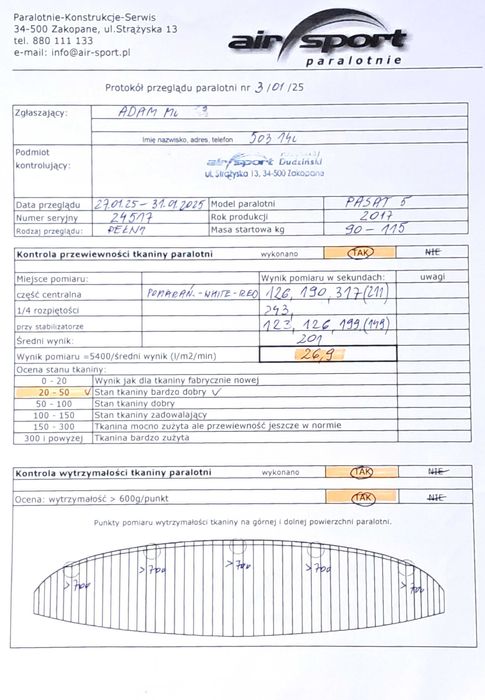 Paralotnie-Konstrukcje-Serwis
34-500 Zakopane, ul.Strążyska 13
tel. 880 111 133
e-mail: info@air-sport.pl
air sport
paralotnie
Protokół przeglądu paralotni nr 3/01/25
Zgłaszający: ADAM
Imię nazwisko, adres, telefon 503 14
Podmiot kontrolujący:
air sport Dudziński
ul. Strążyska 13, 34-500 Zakopane
Data przeglądu 27.01.25 - 31.01.2025 Model paralotni PASAT 5
Numer seryjny 24517 Rok produkcji 2017
Rodzaj przeglądu: PEŁNY Masa startowa kg 90 - 115
Kontrola przewiewności tkaniny paralotni wykonano TAK NIE
Miejsce pomiaru: Wynik pomiaru w sekundach: uwagi
część centralna POMARAŃ.-WHITE-RED 126, 190, 317(211)
1/4 rozpiętości 243,
przy stabilizatorze 123, 126, 199(149)
Średni wynik: 201
Wynik pomiaru =5400/średni wynik (l/m2/min) 26,9
Ocena stanu tkaniny:
0 - 20 Wynik jak dla tkaniny fabrycznie nowej
20 - 50 ✓ Stan tkaniny bardzo dobry ✓
50 - 100 Stan tkaniny dobry
100 - 150 Stan tkaniny zadowalający
150 - 300 Tkanina mocno zużyta ale przewiewność jeszcze w normie
300 i powyżej Tkanina bardzo zużyta
Kontrola wytrzymałości tkaniny paralotni wykonano TAK NIE
Ocena: wytrzymałość > 600g/punkt TAK NIE
Punkty pomiaru wytrzymałości tkaniny na górnej i dolnej powierzchni paralotni.
>700 >700 >700 >700 >700